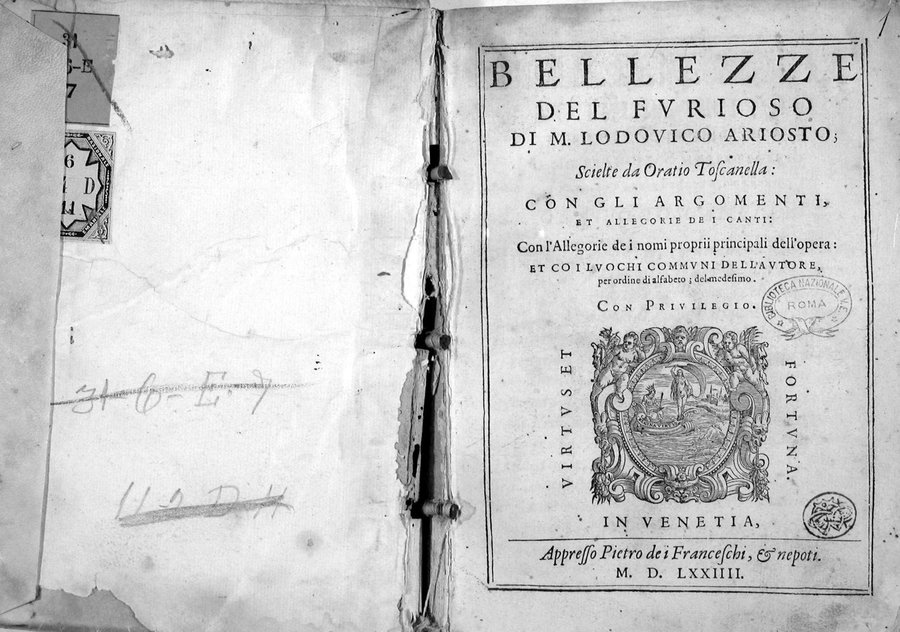 31
6-E
7
6
D
11
31 6-E-7
1
BELLEZZE
DEL FVRIOSO
DI M. LODOVICO ARIOSTO;
Scielte da Oratio Toscanella:
CON GLI ARGOMENTI,
ET ALLEGORIE DE I CANTI:
Con l'Allegorie de i nomi proprii principali dell'opera:
ET CO I LVOCHI COMMVNI DELL'AVTORE,
per ordine di alfabeto; del medesimo.
CON PRIVILEGIO.
BIBLIOTECA NAZIONALE V.E.
ROMA
VIRTVS ET
FORTVNA
IN VENETIA,
Appresso Pietro de i Franceschi, & nepoti.
M. D. LXXIIII.